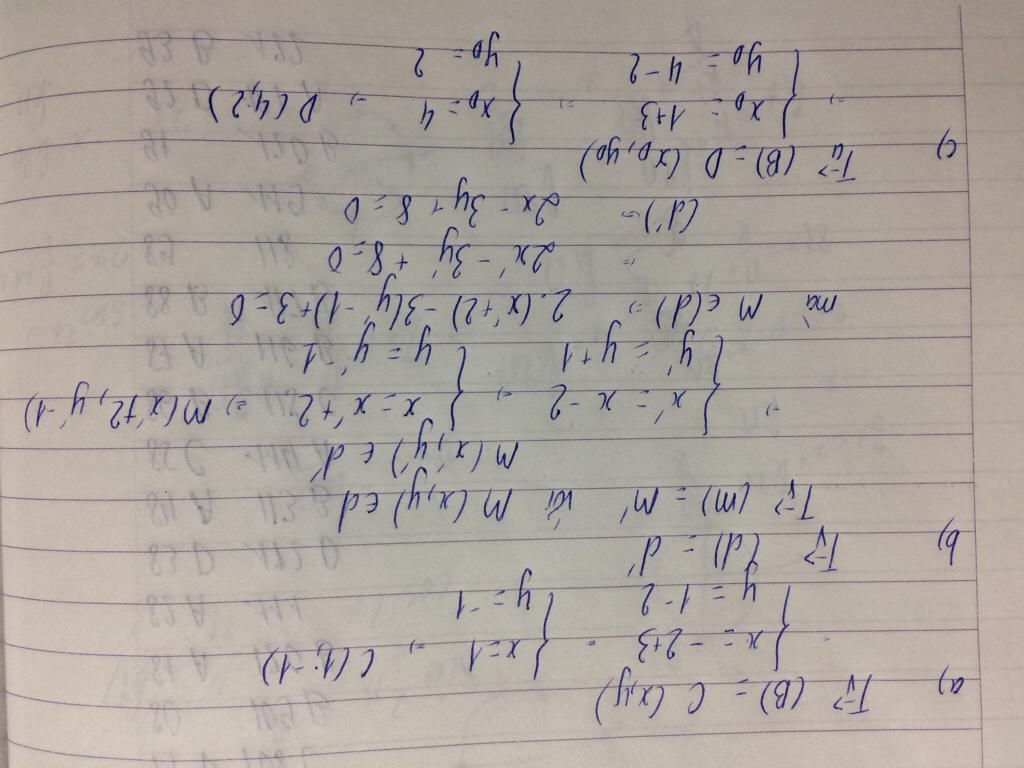 a) T_v⃗ (B) = C (x,y)
= { x = -2+3 = { x = 1 ⇒ C(1;-1)
y = 1-2 y = -1
b) T_v⃗ (d) = d'
T_v⃗ (M) = M' với M (x,y) ∈ d
M (x',y') ∈ d'
⇒ { x' = x - 2 ⇒ { x = x' + 2 ⇒ M (x'+2, y'-1)
y' = y + 1 y = y' - 1
mà M ∈ (d) ⇒ 2.(x'+2) - 3(y'-1) + 3 = 0
= 2x' - 3y' + 8 = 0
(d') = 2x - 3y + 8 = 0
c) T_u⃗ (B) = D (x_D, y_D)
⇒ { x_D = 1+3 ⇒ { x_D = 4 ⇒ D (4;2)
y_D = 4-2 y_D = 2